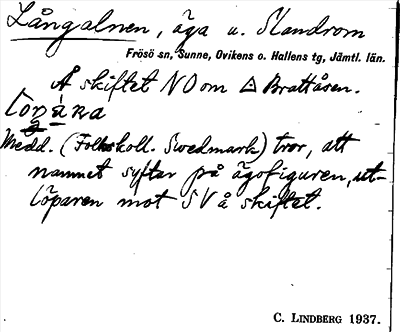 Långalnen, äga u. Slandrom
Frösö sn, Sunne, Ovikens o. Hallens tg, Jämtl. län.
Å skiftet NO om △ Brattåsen.
Medd. (Folkskoll. Swedmark) tror, att
namnet syftar på ägofiguren, ut-
löparen mot SV å skiftet.
C. LINDBERG 1937.